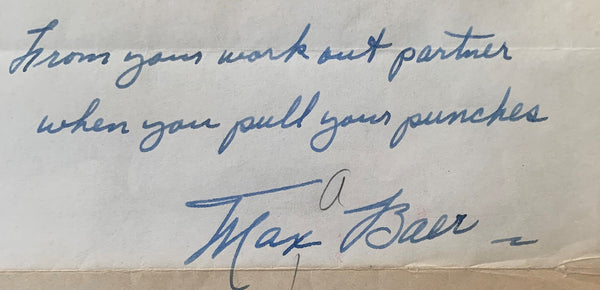 From your work out partner
when you pull your punches
a
Max Baer